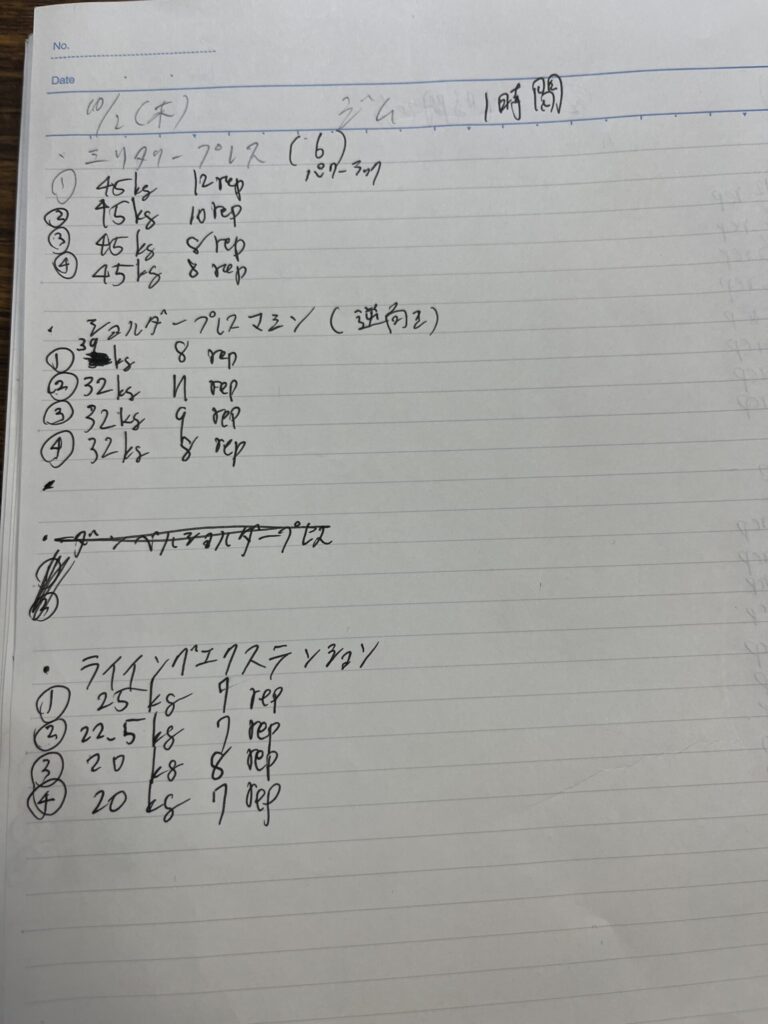 No.
Date
10/2 (木) ジム 1時間
・ミリタリープレス (6)
パワーラック
① 45kg 12rep
② 45kg 10rep
③ 45kg 8rep
④ 45kg 8rep
・ショルダープレスマシン (逆向き)
① 39kg 8 rep
② 32kg 11 rep
③ 32kg 9 rep
④ 32kg 8 rep
・ダンベルショルダープレス
・ライイングエクステンション
① 25 kg 9 rep
② 22.5 kg 7 rep
③ 20 kg 8 rep
④ 20 kg 7 rep